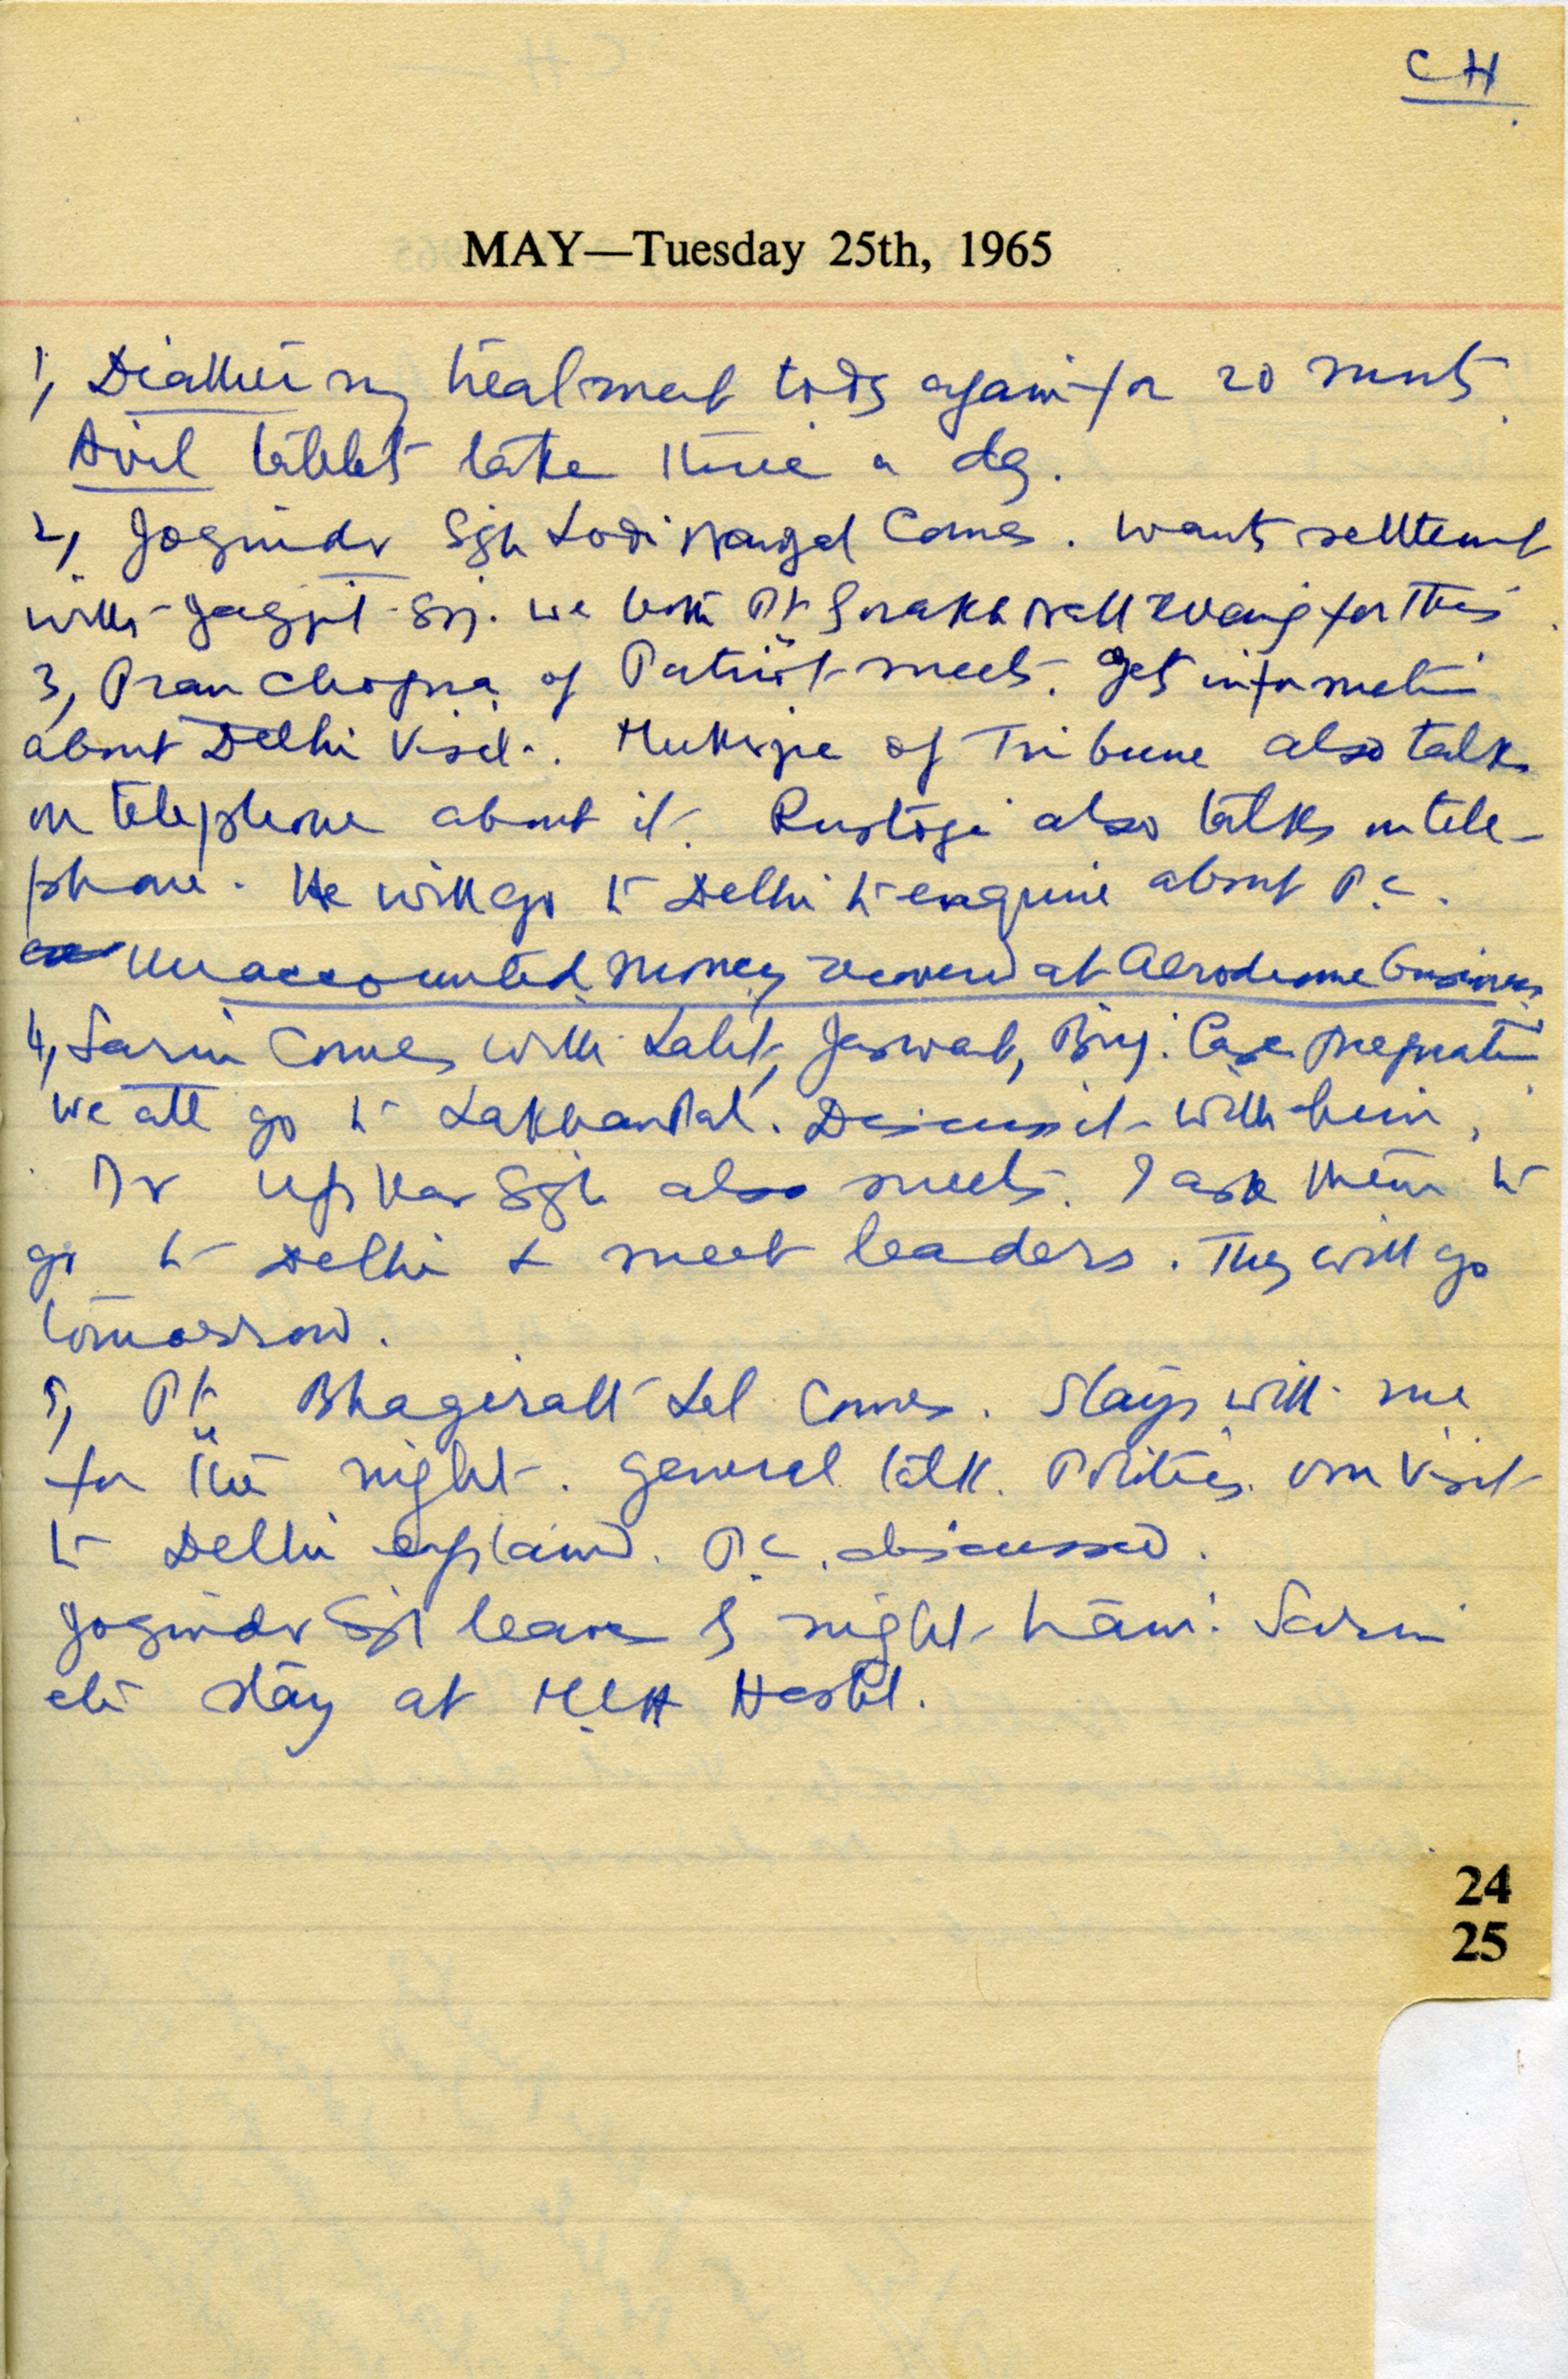 CH
MAY—Tuesday 25th, 1965
1, Diathermy treatment today again for 20 munts
Avil tablets take thrice a day.
2, Jogindr Sgh Lodi Nangal Comes. Wants settlemt
with Jagjit Sgh. We both Pt Gorakh Nath for this
3, Pran Chopra of Patriot meets. Gets information
about Delhi Visit. Mukerjee of Tribune also talks
on telephone about it. Rustogi also talks on tele-
phone. He will go to Delhi to enquire about P.C.
Unaccounted money recovered at Aerodrome business
4, Sarin Comes with Lalit, Jaswant, Brij. Case preparation
We all go to LakhanPal. Discuss it with him,
Dr Upkar Sgh also meets. I ask them to
go to Delhi & meet leaders. They will go
tomorrow.
5, Pt Bhagirath Lal Comes. Stays with me
for the night. General talk. Politics. Our Visit
to Delhi explained. P.C. discussed.
Jogindr Sgh leaves by night train. Sarin
etc stay at MLA Hostel.
24
25